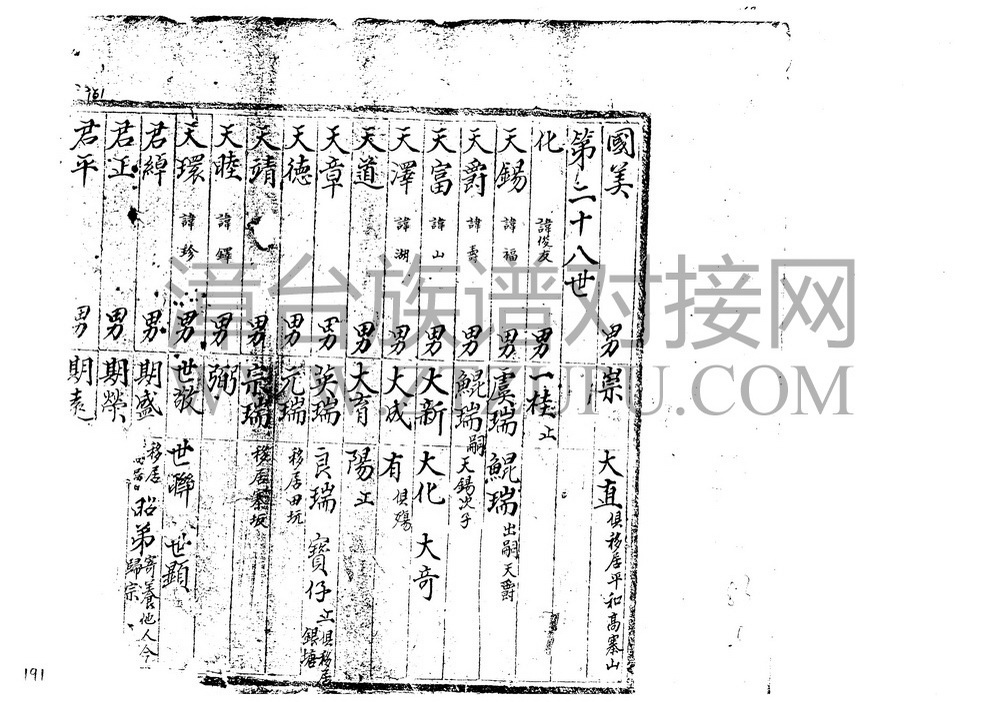 191
國美 男 崇 大直 俱移居平和高寨山
第二十八世
化 諱俊友 男 一桂 止
天錫 諱福 男 虞瑞 鯤瑞 出嗣天爵
天爵 諱壽 男 鯤瑞 嗣天錫次子
天富 諱山 男 大新 大化 大奇
天澤 諱湖 男 大成 有 俱殤
天道 男 大育 陽 止
天章 男 英瑞 良瑞 寶仔 止 俱移居銀塘
天德 男 元瑞 移居田坑
天靖 男 宗瑞 移居 坂
天睦 諱鐸 男 弼
天環 諱珍 男 世敬 世聯 世顯
君綽 男 期盛 移居 昭弟 寄養他人今歸宗
君正 男 期榮
君平 男 期
漳台族谱对接网
WWW.ZTZUPU.COM
191